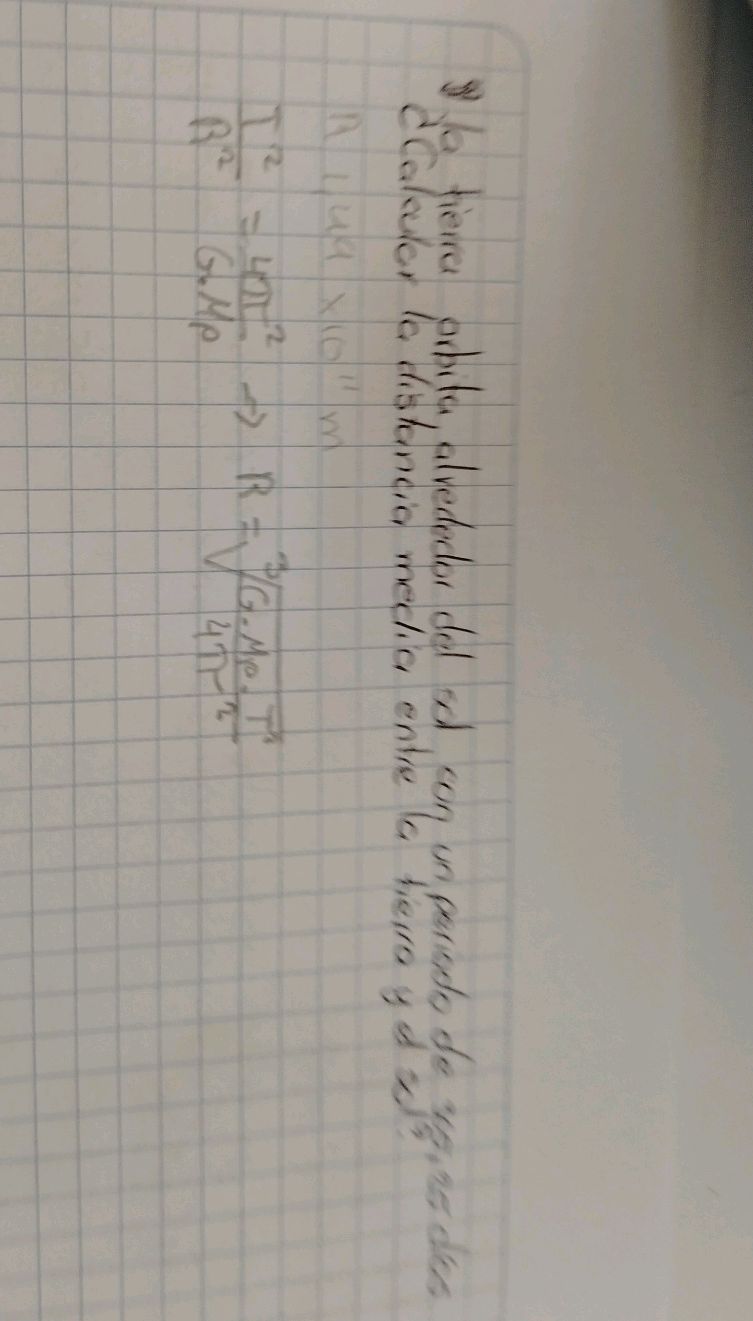 la tierra orbita alrededor del sol con un periodo de 365,25 días
¿Calcular la distancia media entre la tierra y el sol?
R 1,49 x 10¹¹ m
T²/R² = 4π²/G.Mp → R = ³√(G.Mp.T²/4π²)